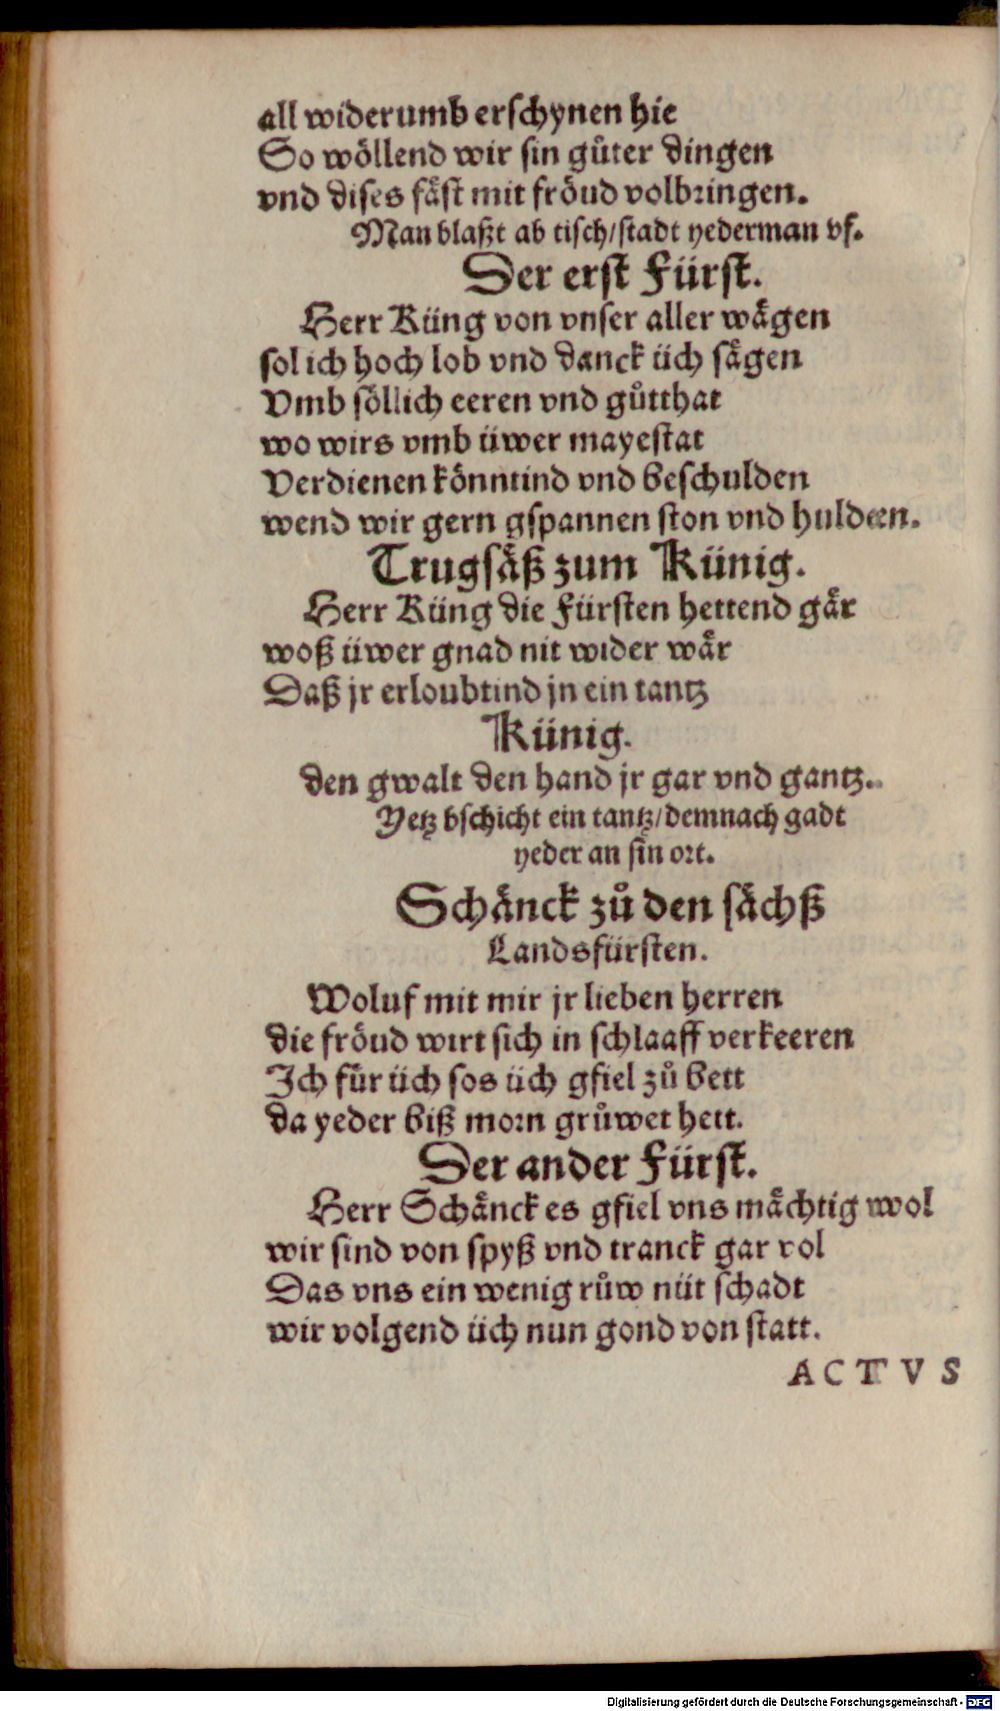 all widerumb erschynen hie
So wöllend wir sin gůter dingen
vnd dises fäst mit fröud volbringen.
Man blaßt ab tisch/stadt yederman vf.
Der erst Fürst.
Herr Küng von vnser aller wägen
sol ich hoch lob vnd danck üch sägen
Vmb söllich eeren vnd gůtthat
wo wirs vmb üwer mayestat
Verdienen könntind vnd beschulden
wend wir gern gspannen ston vnd hulden.
Trugsäß zum Künig.
Herr Küng die Fürsten hettend gär
woß üwer gnad nit wider wär
Daß jr erloubtind jn ein tantz
Künig.
den gwalt den hand jr gar vnd gantz.
Yetz bschicht ein tantz/demnach gadt
yeder an sin ort.
Schänck zů den sächß
Landsfürsten.
Woluf mit mir jr lieben herren
die fröud wirt sich in schlaaff verkeeren
Ich für üch sos üch gfiel zů bett
da yeder biß morn grůwet hett.
Der ander Fürst.
Herr Schänck es gfiel vns mächtig wol
wir sind von spyß vnd tranck gar vol
Das vns ein wenig růw nüt schadt
wir volgend üch nun gond von statt.
ACTVS
Digitalisierung gefördert durch die Deutsche Forschungsgemeinschaft - DFG